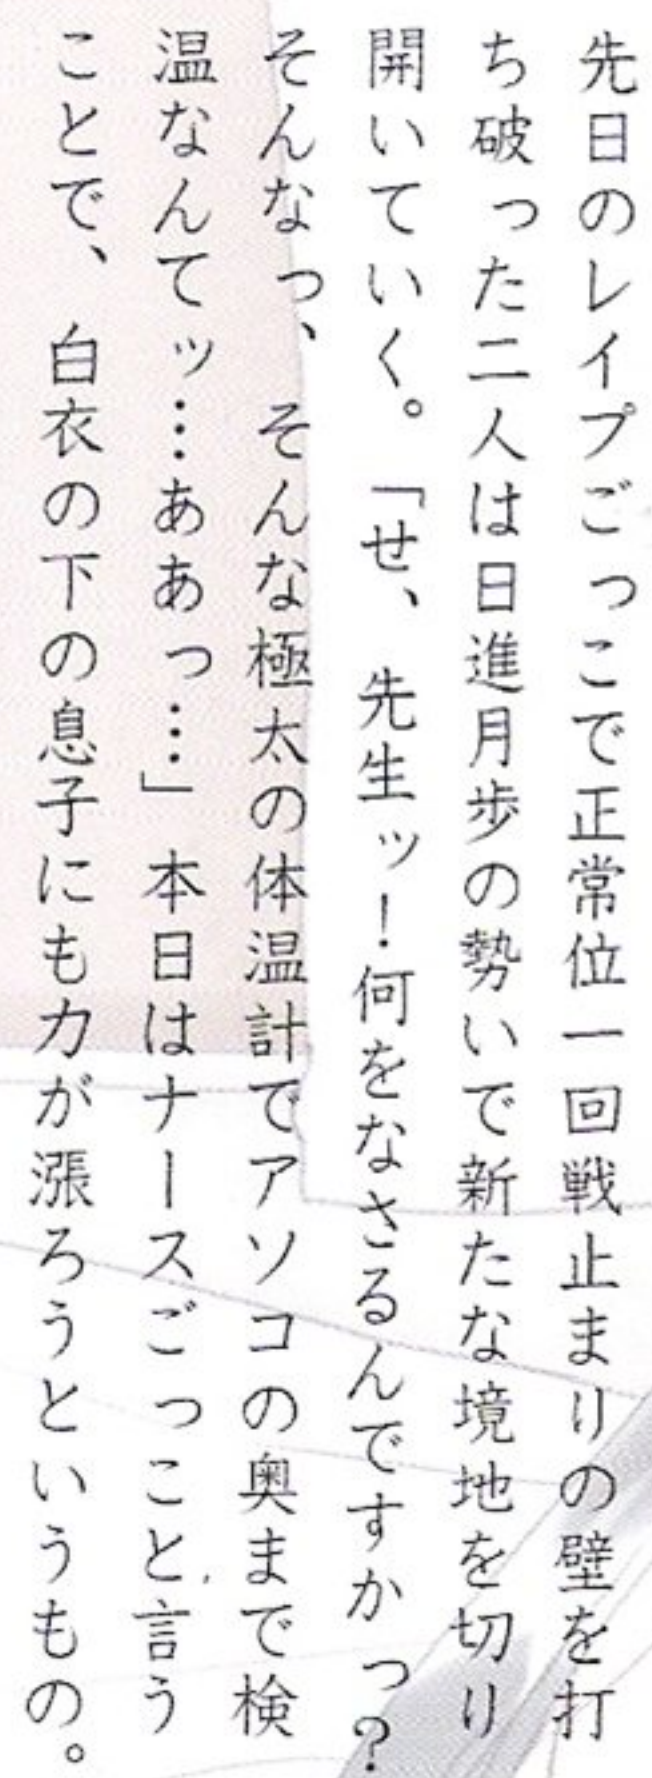 先日のレイプごっこで正常位一回戦止まりの壁を打
ち破った二人は日進月歩の勢いで新たな境地を切り
開いていく。「せ、先生ッ！何をなさるんですかっ？
そんなっ、そんな極太の体温計でアソコの奥まで検
温なんてッ…ああっ…」本日はナースごっこと言う
ことで、白衣の下の息子にも力が漲ろうというもの。